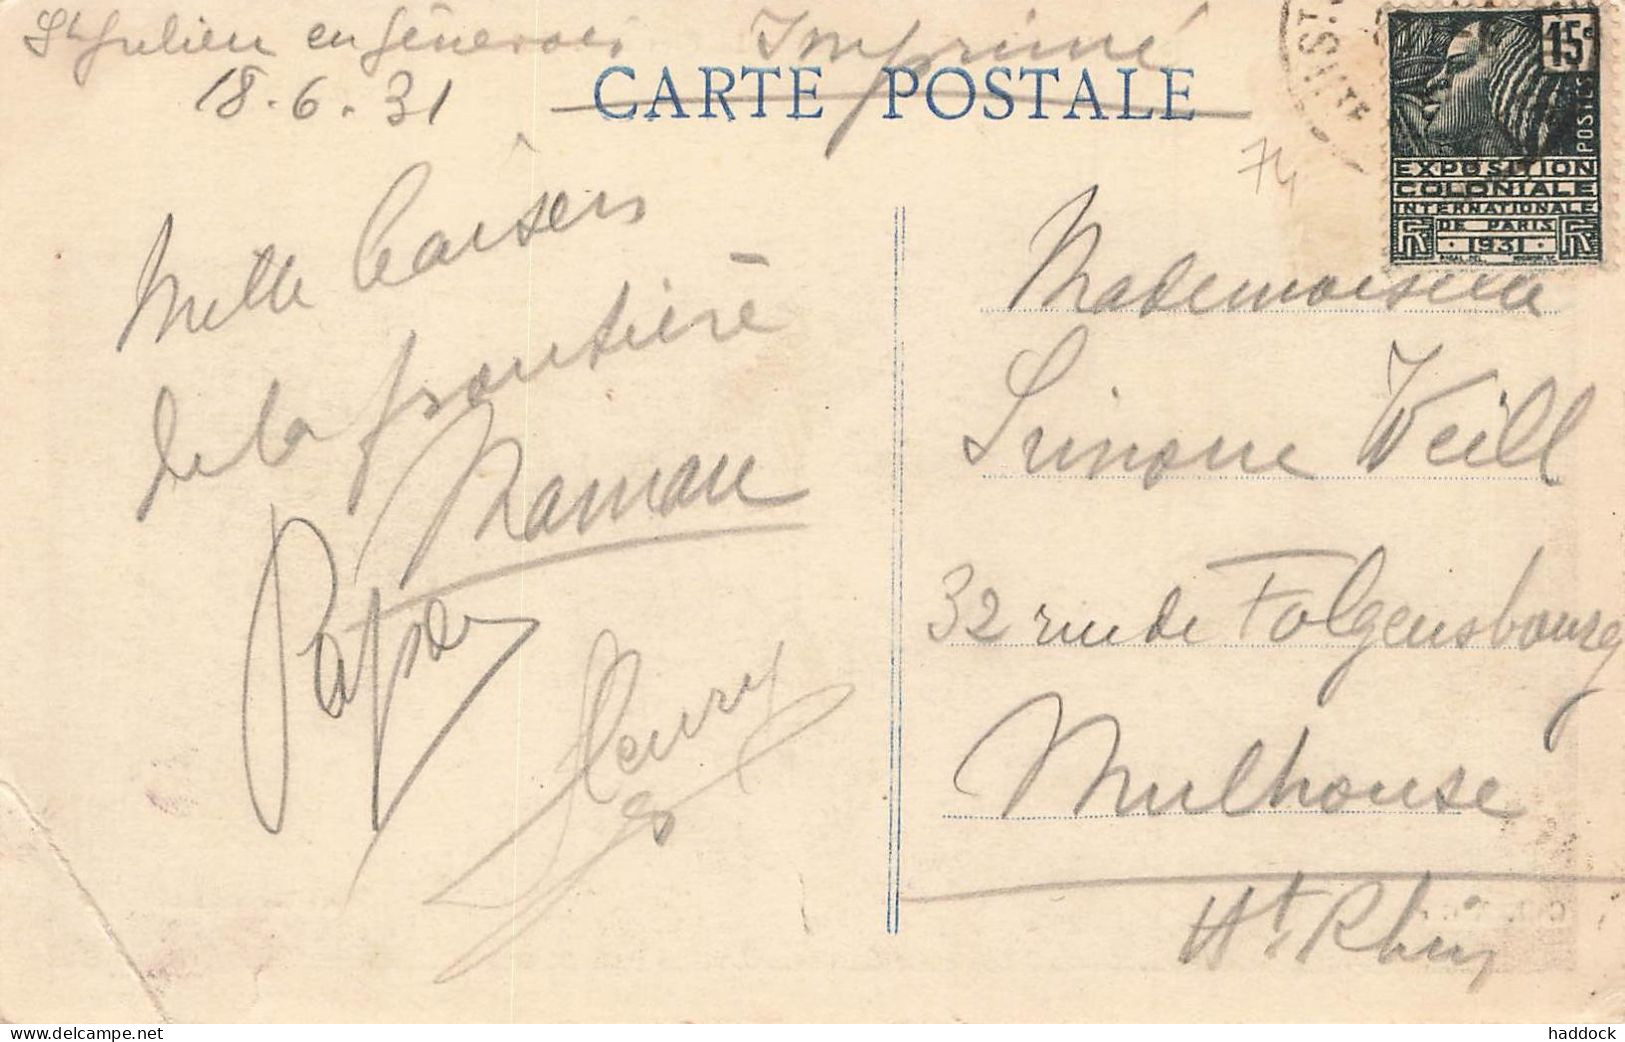 St Julien en Genevois
18.6.31
Imprimé
CARTE POSTALE
ST
15c
POSTES
EXPOSITION
COLONIALE
INTERNATIONALE
DE PARIS
RF 1931 RF
74
Mille baisers
de la frontière
Maman
Papa
Henry
Mademoiselle
Simone Weill
32 rue de Folgensbourg
Mulhouse
Ht. Rhin
www.delcampe.net
haddock